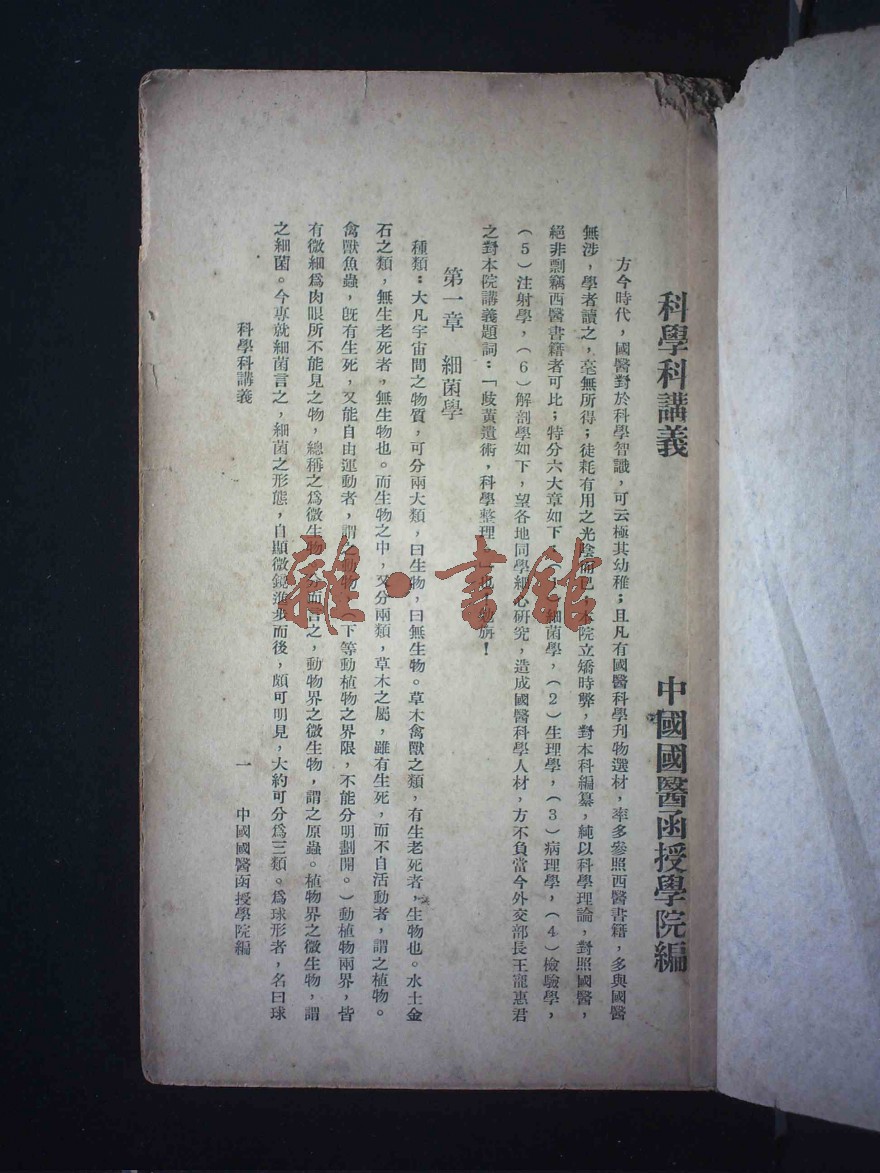 科學科講義　中國國醫函授學院編
方今時代，國醫對於科學智識，可云極其幼稚；且凡有國醫科學刊物選材，率多參照西醫書籍，多與國醫
無涉，學者讀之，毫無所得；徒耗有用之光陰而已，本院立矯時弊，對本科編纂，純以科學理論，對照國醫，
絕非剽竊西醫書籍者可比；特分六大章如下，細菌學，（2）生理學，（3）病理學，（4）檢驗學，
（5）注射學，（6）解剖學如下，望各地同學細心研究，造成國醫科學人材，方不負當今外交部長王寵惠君
之對本院講義題詞：「歧黃遺術，科學整理」也，勉旃！
第一章　細菌學
種類：大凡宇宙間之物質，可分兩大類，曰生物，曰無生物。草木禽獸之類，有生老死者，生物也。水土金
石之類，無生老死者，無生物也。而生物之中，又分兩類，草木之屬，雖有生死，而不自活動者，謂之植物。
禽獸魚蟲，旣有生死，又能自由運動者，謂之動物，下等動植物之界限，不能分明劃開。）動植物兩界，皆
有微細爲肉眼所不能見之物，總稱之爲微生物，分而言之，動物界之微生物，謂之原蟲。植物界之微生物，謂
之細菌。今專就細菌言之，細菌之形態，自顯微鏡進步而後，頗可明見，大約可分爲三類。爲球形者，名曰球
科學科講義　一　中國國醫函授學院編
雜·書館